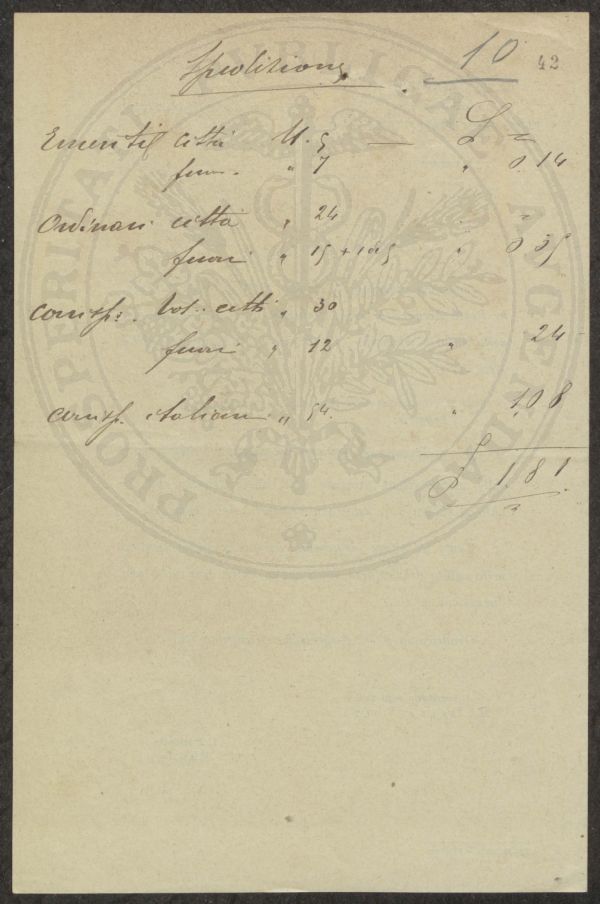 Spedizione 10 42
Emeriti città N. 5 — L =
fuori " 7 " 0.14
Ordinari città " 24 " =
fuori " 15 + 1 a 5 " 0 35
corrisp. Bol. città " 30
fuori " 12 " 24
corrisp. italiani " 54. " 1,08
£ 1 81
PROSPERITATI PVBLICAE AVGENDAE